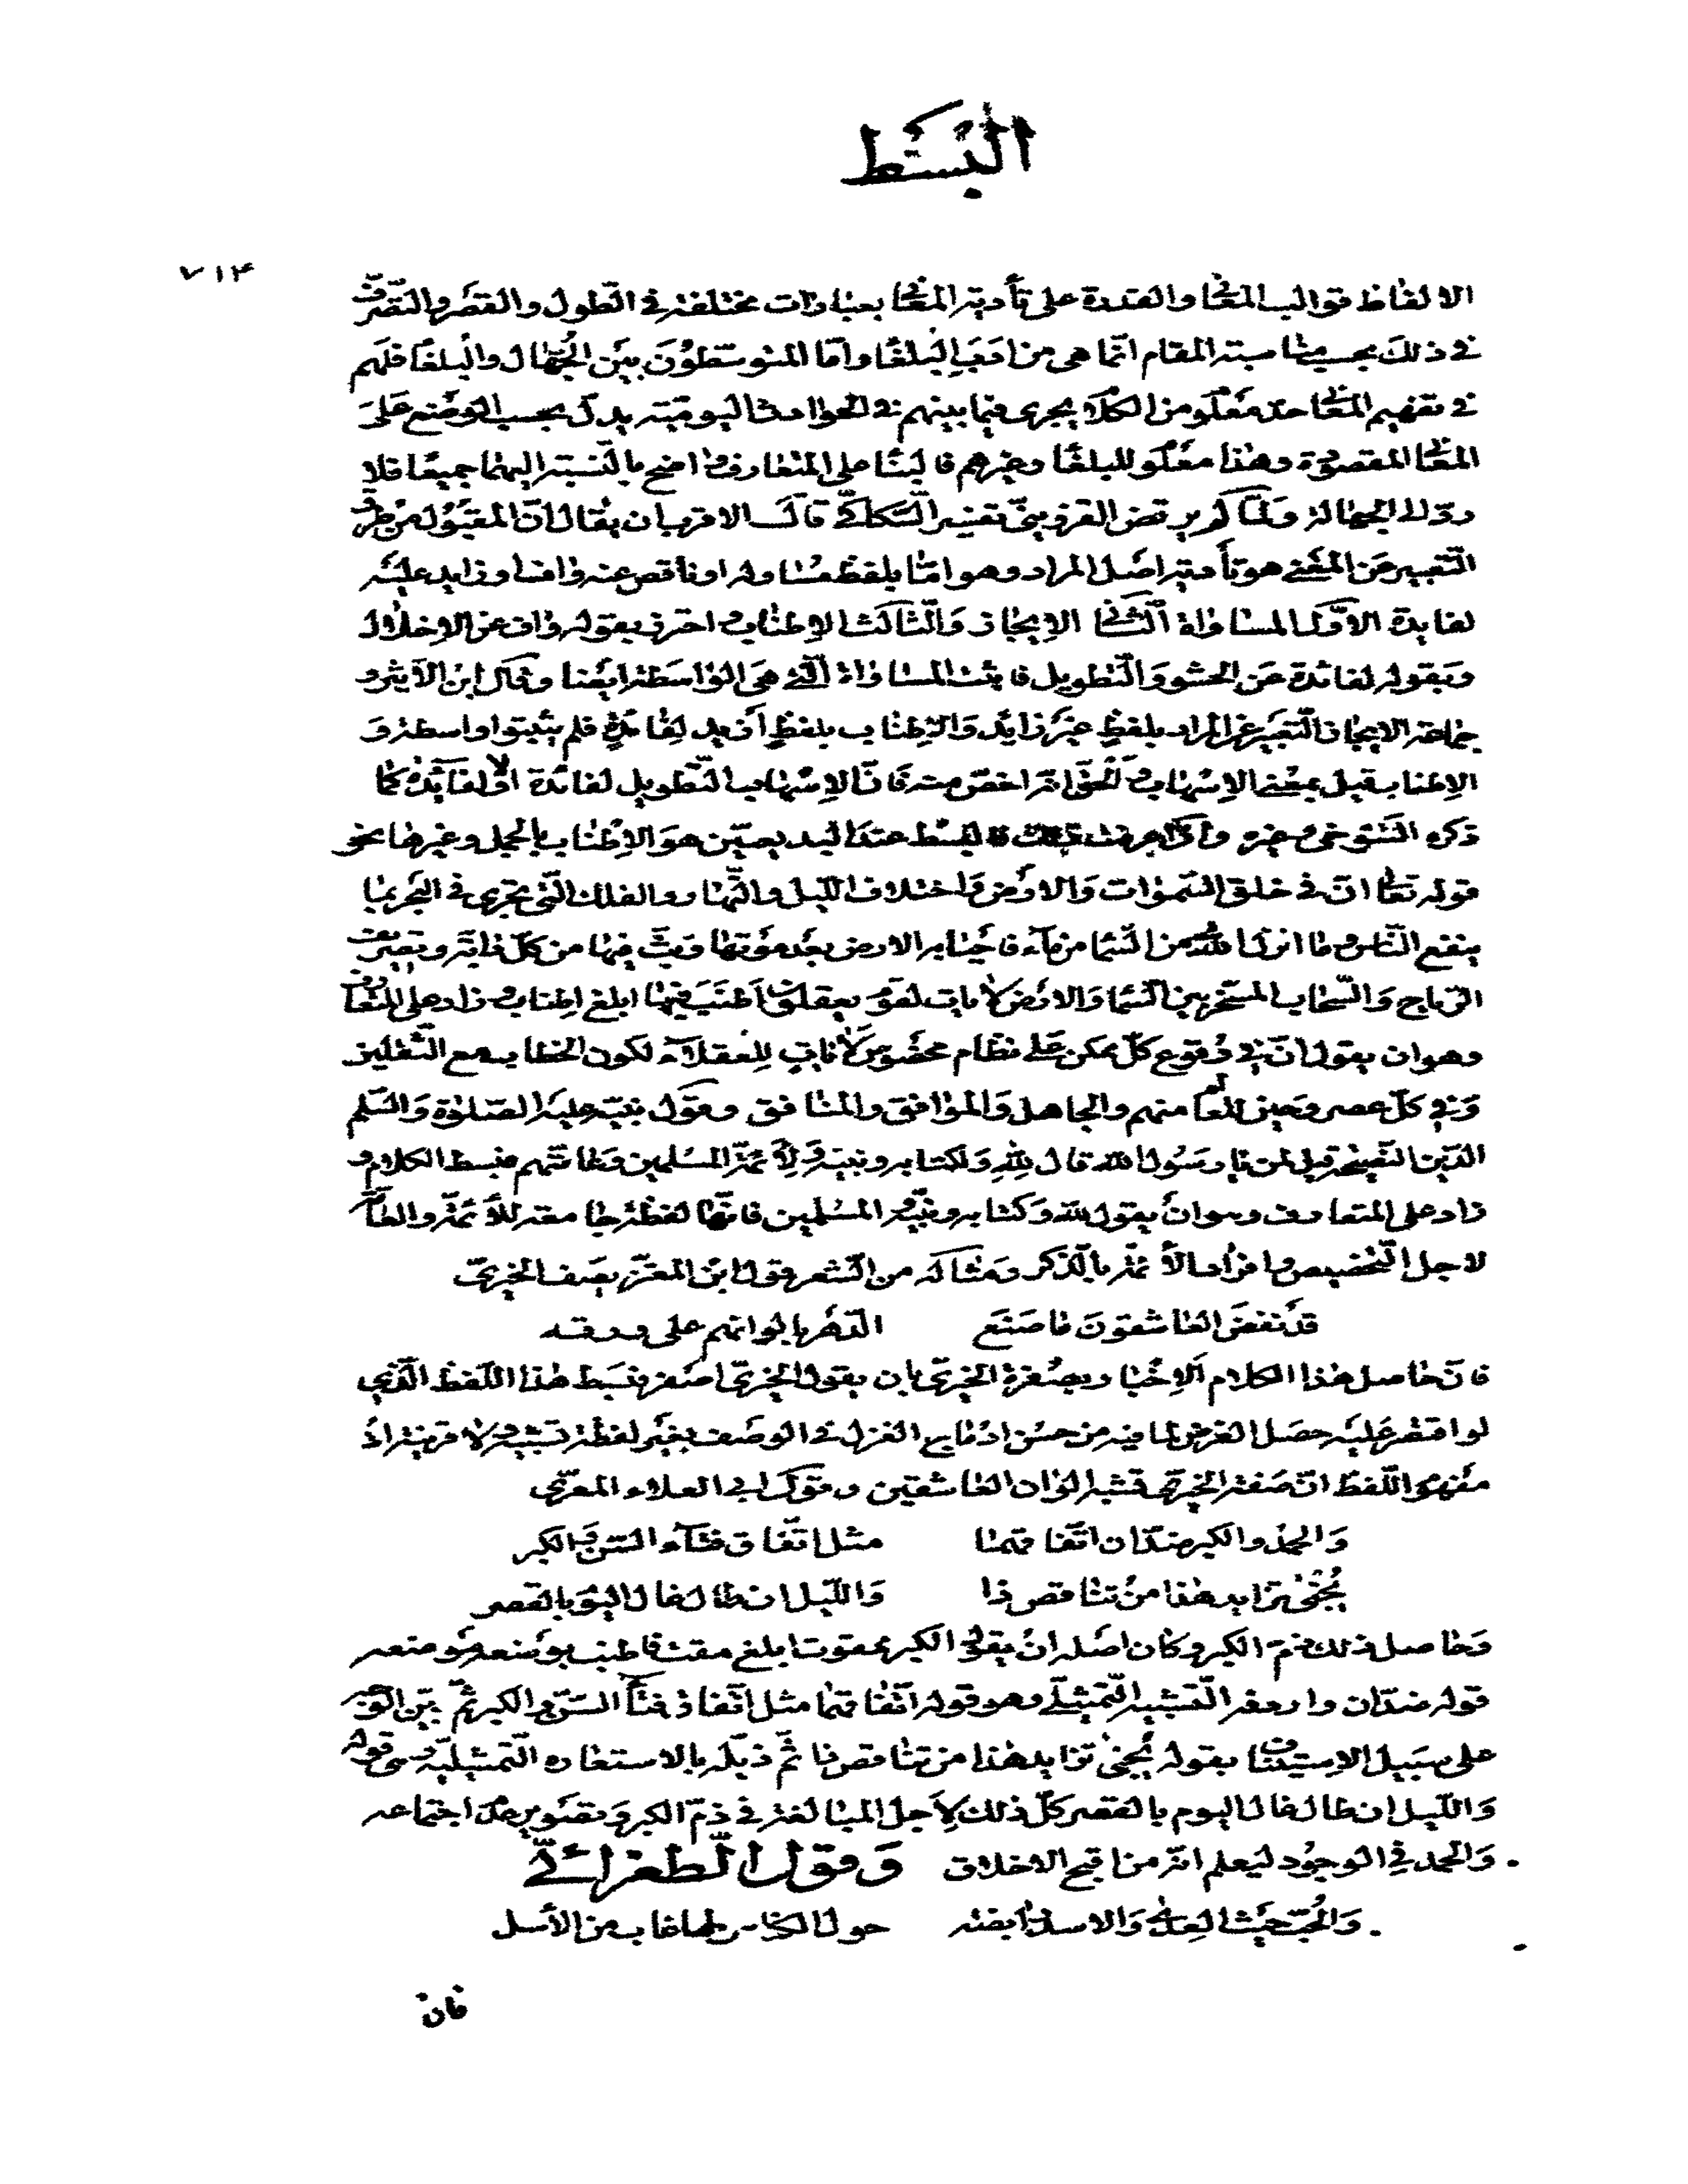 البسط
٧١٤
الالفاظ قوالب المعانى والقدرة على تأدية المعانى بعبارات مختلفة فى الطول والقصر والتصرّف
فى ذلك بحسب مناسبة المقام انّما هى من ادب البلغا وامّا المتوسّطون بين الجهّال والبلغا فلهم
فى تفهيم المعانى حدّ معلوم من الكلام يجرى فيما بينهم فى الحوادث اليوميّة يدلّ بحسب الوضع على
المعانى المقصودة وهذا معلوم للبلغا وغيرهم فالبنا على المتعارف واضح بالنّسبة اليهما جميعًا فلا
ردّ الى الجهالة ولمّا لم يرتض القزوينى تفسير السّكاكى قال الاقرب ان يقال انّ المقبول من طرق
التّعبير عن المعنى هو تأدية اصل المراد وهو امّا بلفظ مساو له او ناقص عنه واف او زايد عليه
لفايدة الاوّل المساواة الثّانى الايجاز والثّالث الاطناب واحترز بقوله واف عن الاخلال
وبقوله لفائدة عن الحشو والتّطويل فاثبت المساواة الّتى هى الواسطة ايضا وقال ابن الاثير و
جماعة الايجاز التّعبير عن المراد بلفظٍ غير زايد والاطناب بلفظٍ أزيد لفائدةٍ فلم يثبتوا واسطة و
الاطناب قيل بمعنى الاسهاب والحقّ انّه اخصّ منه فانّ الاسهاب التّطويل لفائدة او لا لفائدة كما
ذكره التّنوخى وغيره واذا عرفت ذلك فالبسط عند البديعيّين هو الاطناب بالجمل وغيرها نحو
قوله تعالى انّ فى خلق السّموات والارض واختلاف اللّيل والنّهار والفلك الّتى تجرى فى البحر بما
ينفع النّاس وما انزل اللّه من السّماء من ماء فاحيا به الارض بعد موتها وبثّ فيها من كلّ دابّة وتصريف
الرّياح والسّحاب المسخّر بين السّما والارض لآيات لقوم يعقلون اطنب فيها ابلغ اطناب وزاد على المتعارف
وهو ان يقول انّ فى وقوع كلّ ممكن على نظام مخصوص لآيات للعقلآء لكون الخطاب مع الثّقلين
وفى كلّ عصر وحين للعالم منهم والجاهل والموافق والمنافق وقول نبيّه عليه الصّلوة والسّلم
الدّين النّصيحة قيل لمن يا رسول اللّه قال للّه ولكتابه ونبيّه ولأئمّة المسلمين وعامّتهم فبسط الكلام و
زاد على المتعارف وهو ان يقول للّه وكتابه ونبيّه والمسلمين فانّها لفظة جامعة للأئمّة والعامّة
لاجل التّخصيص وافراد الأئمّة بالذّكر ومثاله من الشّعر قول ابن المعتزّ يصف الخيرىّ
قد نفض العاشقون ما صنع الدّهر بالوانهم على ورقه
فانّ حاصل هذا الكلام الاخبار بصفرة الخيرىّ بان يقول الخيرىّ اصفر فبسط هذا اللّفظ الّذى
لو اقتصر عليه حصل الغرض لما فيه من حسن ادماج الغزل فى الوصف بغير لفظة تشبيه ولا قرينة اذ
مفهوم اللّفظ انّ صفرة الخيرىّ تشبه الوان العاشقين وقول ابى العلاء المعرّى
والحمد والكبر ضدّان اتّفاقهما مثل اتّفاق فتآء السّنّ والكبر
يُجنى تزايد هذا من تناقص ذا واللّيل ان طال غال اليوم بالقصر
وحاصل ذلك ذمّ الكبر وكان اصله ان يقول الكبر ممقوت ابلغ مقت فاطنب بوضعه موضعه
قوله ضدّان واردفه التّشبيه التّمثيلى وهو قوله اتّفاقهما مثل اتّفاق فتآء السّنّ والكبر ثمّ بيّن الغرض
على سبيل الاستيناف بقوله يُجنى تزايد هذا من تناقص ذا ثمّ ذيّله بالاستعاره التّمثيليّة وهى قوله
واللّيل ان طال غال اليوم بالقصر كلّ ذلك لاجل المبالغة فى ذمّ الكبر وتصوير عدم اجتماعه
والحمد فى الوجود ليعلم انّه من اقبح الاخلاق وقول الطغرائىّ
والحبّ حيث العدى والاسد رابضة حول الكناس لها غاب من الأسل
فانّ